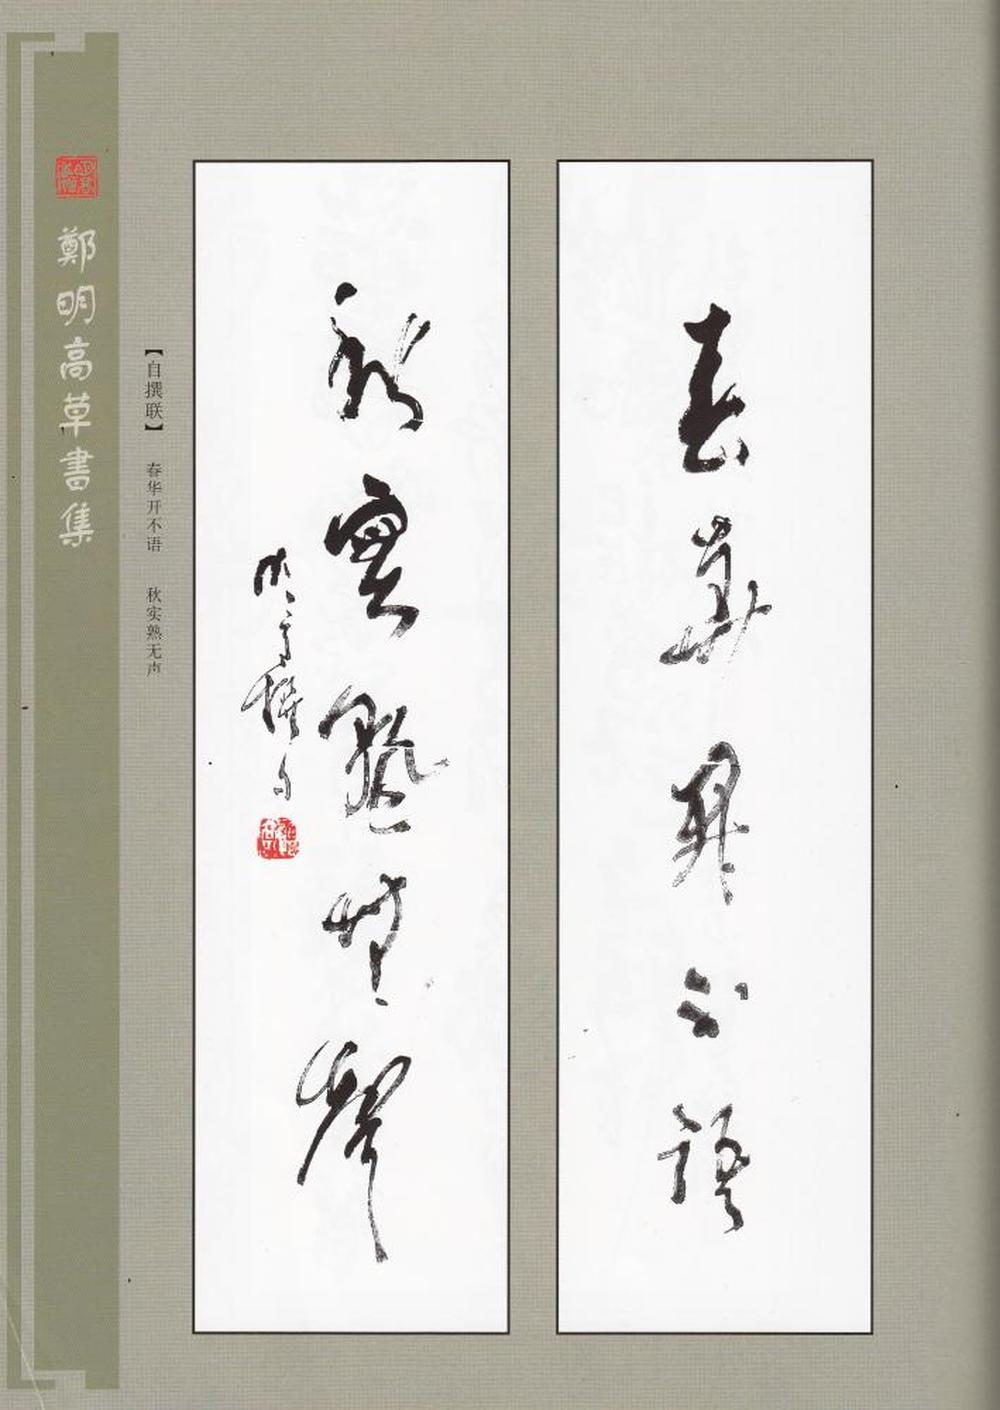 春華開不語
秋實熟無聲
明高撰句
【自撰联】 春华开不语 秋实熟无声
鄭明高草書集